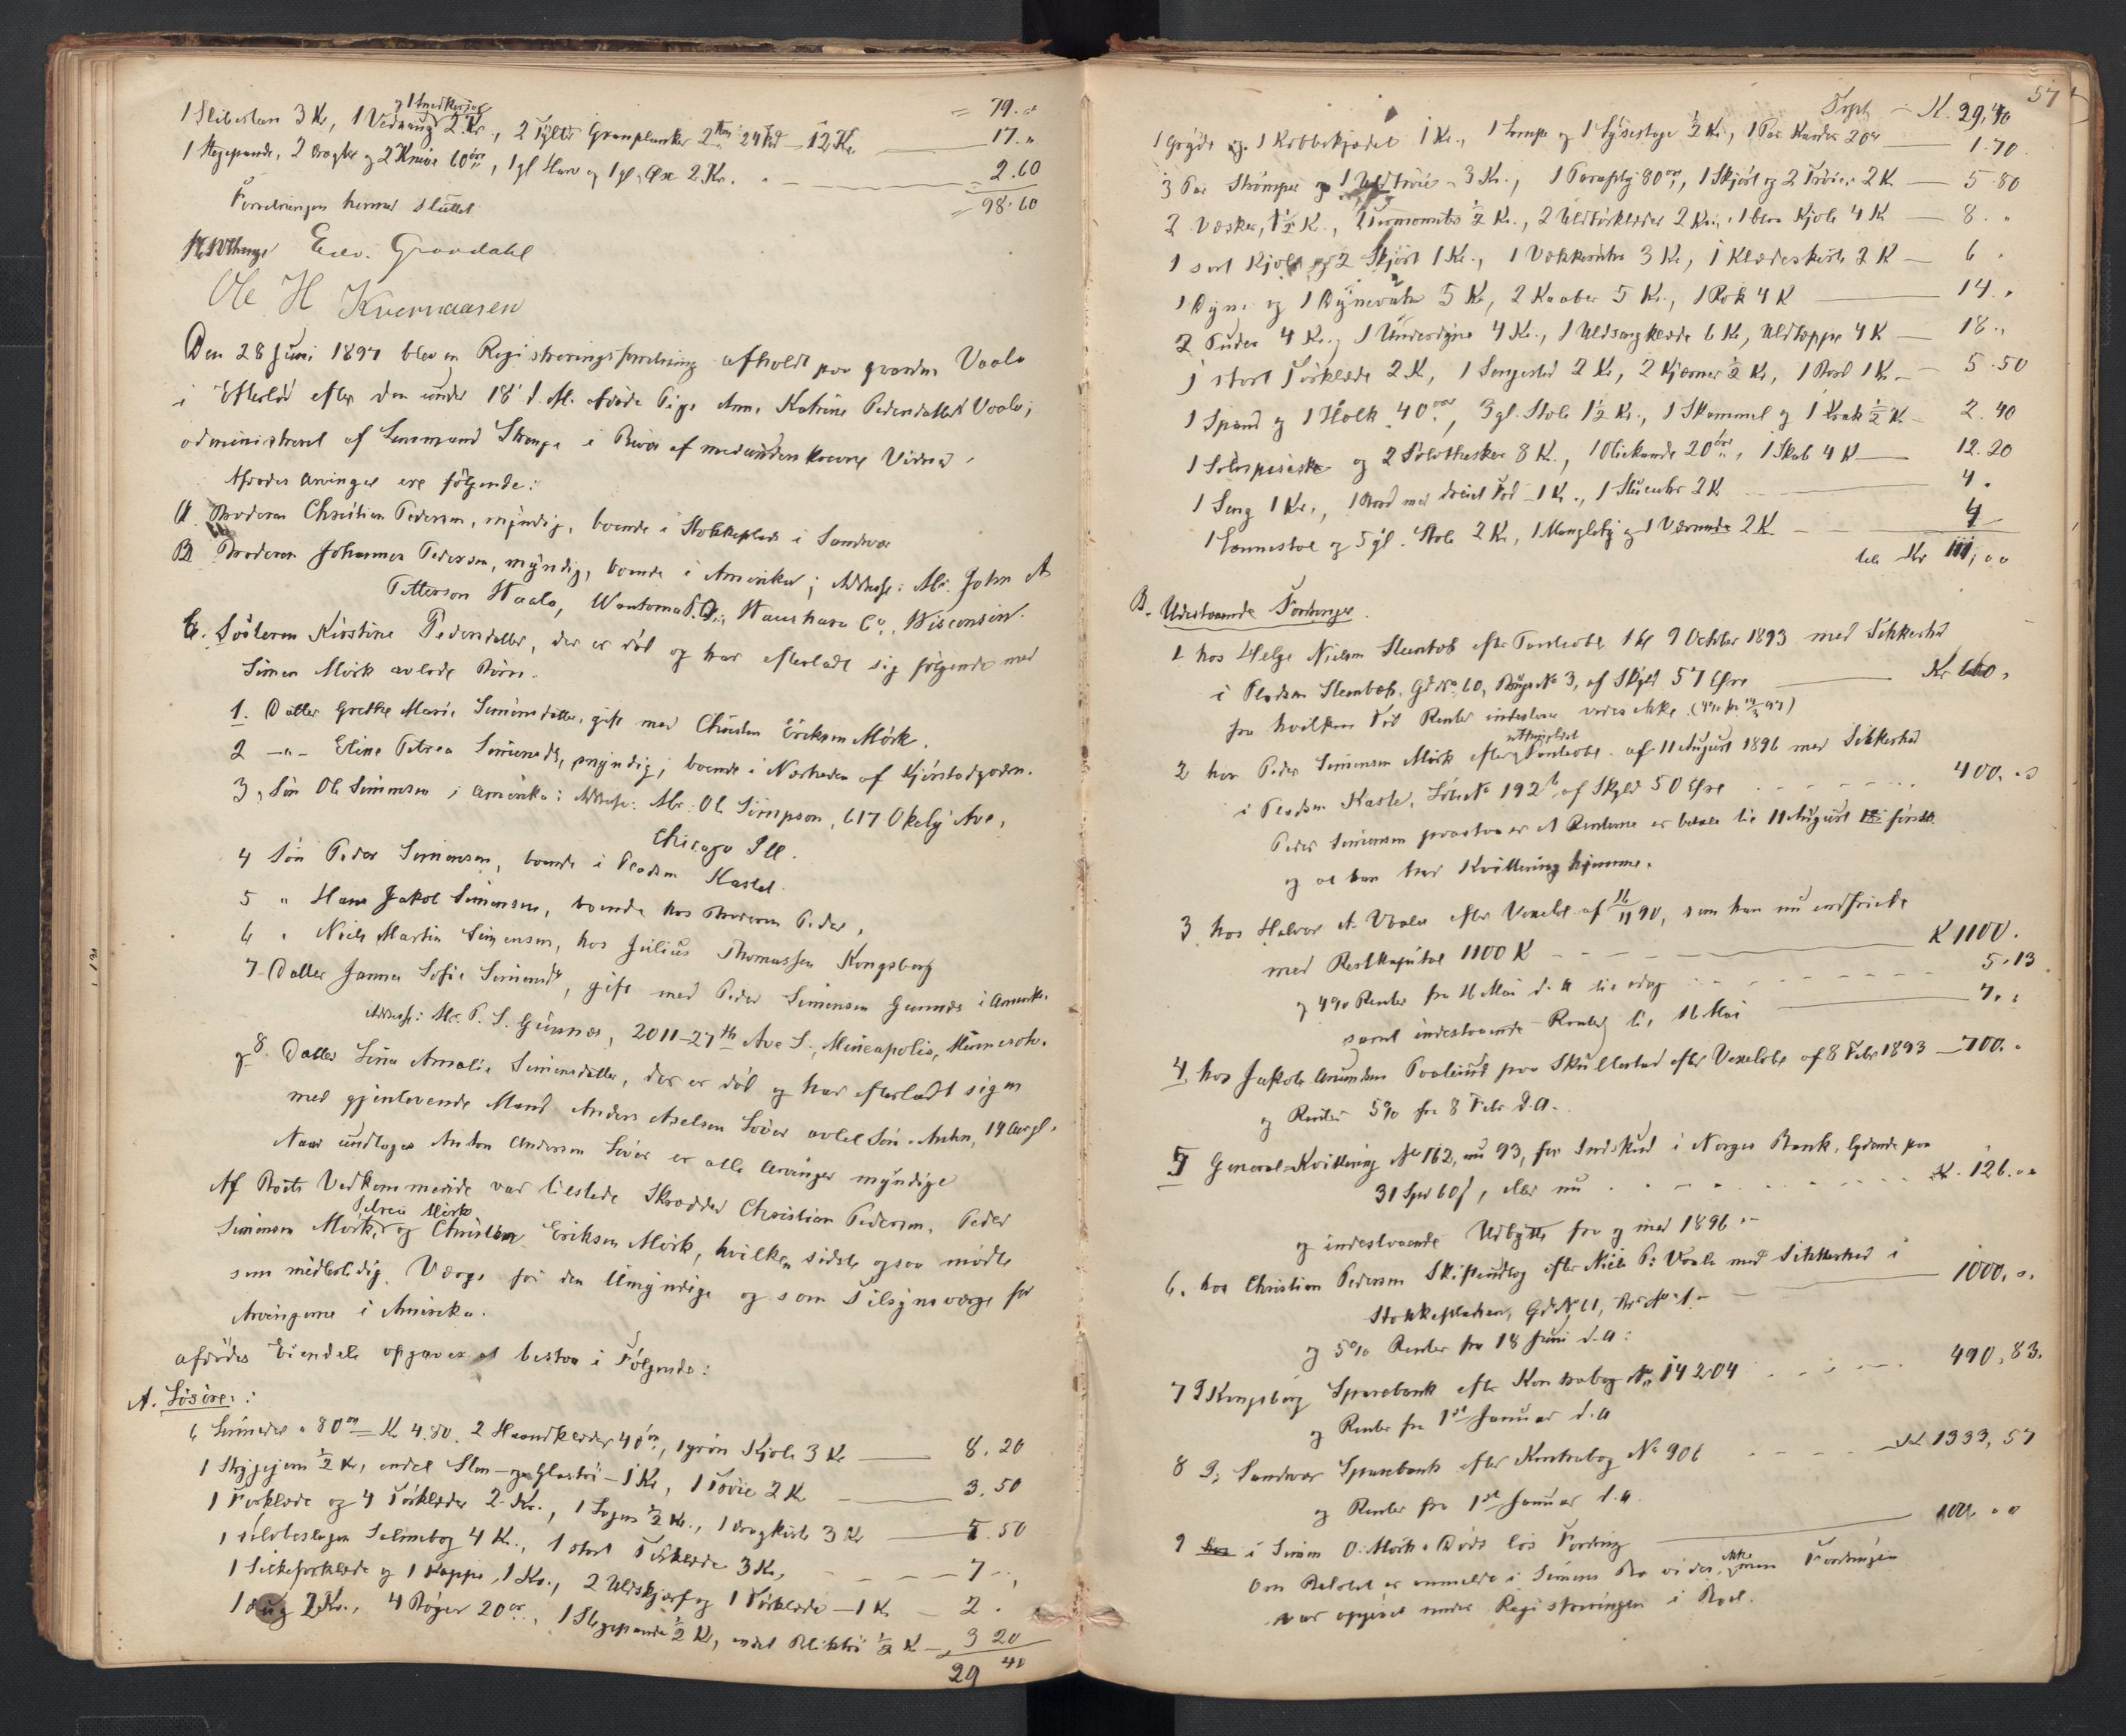 = 79. "
og 1 Snedkersag
1 Slibesten 3 Kr, 1 Vedsaug 2 Kr., 2 Tylter Granplanker 2 24 Fod — 12 Kr. — 17. "
1 Stegepande, 2 og 2 Knive 60 øre, 1 gl Harv og 1 gl. Øxe 2 Kr. — 2.60
= 98.60
Forretningen hermed sluttet
Grøndahl
Ole H Kvernaasen
Den 28 Juni 1897 blev en Registreringsforretning afholdt paa gaarden Vaalo
i Efterlad efter den under 18' d. M. afdøde Pige Anne Katrine Pedersdatter Vaalo,
administreret af Lensmand i af medunderskrevne Vidner.
Afdødes arvinger ere følgende:
A. Broderen Christian Pedersen, myndig, boende i Stokkeplads i Sandsvær
B Broderen Johannes Pedersen, myndig, boende i Amerika; Addresse: Mr. John A
Petterson Waalo, Wautoma P.O., Waushara Co., Wisconsin.
C. Søsteren Kirstine Pedersdatter, der er død og har efterladt sig følgende med
Simen Mørk avlede Børn.
1. Datter Grethe Marie Simensdatter, gift med Christen Eriksen Mørk.
2 —"— Eline Petrea Simensdr, myndig, boende i Nærheden af Kjørstadgaden.
3, Søn Ole Simensen i Amerika: Addresse: Mr. Ole Simpson, 617 Okely Ave,
Chicago Ill.
4 Søn Peder Simensen, boende i Pladsen Kastet.
5 " Hans Jakob Simensen, boende hos Broderen Peder,
6 " Niels Martin Simensen, hos Julius Thomassen Kongsberg
7- Datter Janna Sofie Simensdr, gift med Peder Simensen Gunnes i Amerika.
Addresse: Mr. P. S. Gunnes, 2011-27th Ave S., Mineapolis, Minnesota.
og 8. Datter Lina Amalie Simensdatter, der er død og har efterladt sig en
med gjenlevende Mand Anders Axelsen avlet Søn: Anton, 14 Aar gl.
Naar undtages Anton Andersen er alle Arvinger myndige
Af Boets Vedkommende var tilstede Skrædder Christian Pedersen, Peder
Petrea Mørk
Simensen Mørk, og Christen Eriksen Mørk, hvilken sidste ogsaa mødte
som midlertidig Værge for den Umyndige og som Tilsynsværge for
Arvingerne i Amerika.
Afdødes Eiendele opgaves at bestaa i Følgende:
A. Løsøre:
6 Linneder a 80 ør = Kr 4.80. 2 Haandklæder 40 ør, 1 grøn Kjole 3 Kr — 8.20
1 Strygejern ½ Kr, endel Sten- og Glastøi - 1 Kr, 1 Trøie 2 Kr — 3.50
1 Forklæde og 4 Tørklæder 2 Kr., 1 Lagen ½ Kr., 1 Dragkiste 3 Kr — 5.50
1 sølvbeslagen Salmebog 4 Kr., 1 stort Tørklæde 3 Kr, — 7 -,
1 Silketørklæde og 1 Kappe, 1 Kr., 2 Uldskjærf og 1 Tørklæde - 1 Kr — 2.
1 2 Kr., 4 Bøger 20 ør., 1 Stegepande ½ Kr, endel Bliktøi ½ Kr — 3 20
29 40
57
Trspt — K. 29,40
1 Gryde og 1 Kobberkjedel 1 Kr., 1 Lampe og 1 Lysestage ½ Kr., 1 Par Karder 20 ør — 1.70.
3 Par Strømper og 1 Uldtrøie - 3 Kr., 1 Paraply 80 ør, 1 Skjørt og 2 Trøier 2 K — 5.80
2 Væsker, 1½ K., 1 Termometer ½ Kr., 2 Uldtørklæder 2 Kr., 1 blaa Kjole 4 K — 8. "
1 sort Kjole og 2 Skjørt 1 Kr., 1 Vækkeruhr 3 Kr, 1 Klædeskiste 2 K — 6 "
1 Dyne og 1 Dynevar 5 Kr, 2 Kaaber 5 Kr., 1 Rok 4 K — 14. "
2 Puder 4 Kr., 1 Underdyne 4 Kr., 1 Uldsengklæde 6 Kr, Uldtæppe 4 K — 18. "
1 stort Tørklæde 2 K, 1 Sengested 2 Kr, 2 Kjærner ½ Kr, 1 Bord 1 Kr — 5.50
1 Spand og 1 Holk 40 ør, 3 gl. Stole 1½ Kr., 1 Skammel og 1 Krak ½ K. — 2.40
1 Sølvspiseske og 2 Sølvtheskeer 8 K., 1 Oliekande 20 ør, 1 Skab 4 K — 12.20
1 Seng 1 Kr., 1 Bord med dreiet Fod - 1 Kr., 1 Stueuhr 2 K — 4.
1 Lænestol og 5 gl. Stole 2 Kr, 1 Mangletøj og 1 2 K — 4
tils Kr 111,00
B. Udestaaende Fordringer.
1 hos Helge Nielsen Steenbæk efter Panteobl. 9 October 1893 med Sikkerhed
i Pladsen Steenbæk, Gd No 60, Brugs No 3, af Skyld 57 Øre — Kr 600,
fra hvilken Tid Renter indestaar vides ikke.
uthinglæst
2 hos Peder Simensen Mørk efter Panteobl. af 11 August 1896 med Sikkerhed
i Pladsen Kastet, Løbe No 192 b af Skyld 50 Øre — 400. "
Peder Simensen paastaar at Renterne er betalt til 11 August
og at han har Kvittering hjemme.
3 hos Halvor A. Vaalo efter Vexelobl af 16/11 90, som han nu indfriede
med Restkapital 1100 K — K 1100.
og 4% Renter fra 16 Mai d. A til idag — 5.13
samt indestaaende Renter til 16 Mai — 7. "
4. hos Jakob Amundsen Paalerud paa Skullestad efter Vexelobl af 8 Febr 1893 — 700. "
og Renter 5% fra 8 Febr d.A.
5 General-Kvittering No 162, nu 93, for Indskud i Norges Bank, lydende paa
31 Spd 60 β, eller nu — K. 126. "
og indestaaende Udbytte fra og med 1896. —
6. hos Christian Pedersen Skifteudlæg efter Niels P: Vaalo med Sikkerhed i
Stokkepladsen, Gd No 61, Br No 1. — 1000. "
og 5% Renter fra 18 Juni d. A:
7 I Kongsberg Sparebank efter Kontrabog No 14204 — 490,83.
og Renter fra 1st Januar d. A
8 I Sandsvær Sparebank efter Kontrabog No 906 — K 1333,57
og Renter fra 1st Januar d. A.
9 hos i Simen O. Mørks Døds bos Fordring — 100. "
ikke
Om Beløbet er anmeldt i Simens Bo vides, men Fordringen
var opgivet under Registreringen i Boet.